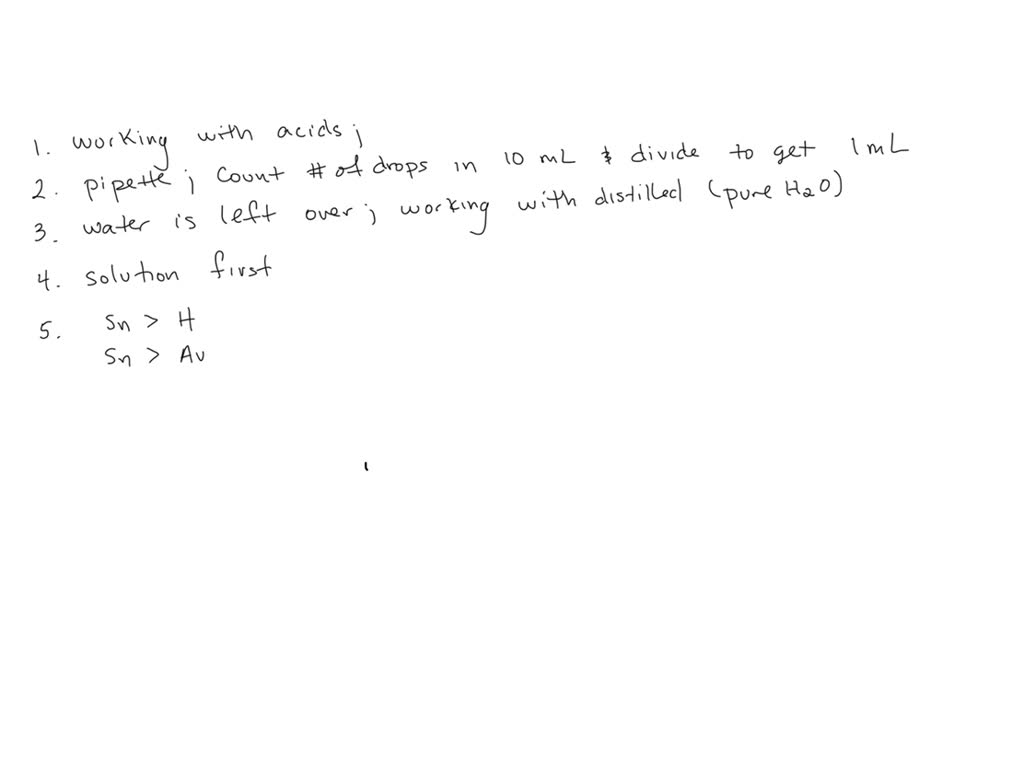 1. working with acids ;
2. pipette ; count # of drops in 10 mL & divide to get 1 mL
3. water is left over ; working with distilled (pure H2O)
4. solution first
5. Sn > H
Sn > Au